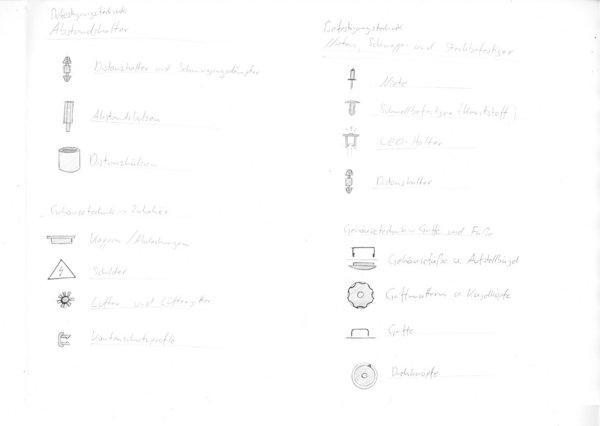 Befestigungstechnik
Abstandshalter
Distanzhalter und Schwingungsdämpfer
Abstandsbolzen
Distanzhülsen
Gehäusetechnik - Zubehör
Kappen / Abdeckungen
Schilder
Lüfter und Lüftergitter
Kantenschutzprofile
Befestigungstechnik
Nieten, Schnapp- und Steckbefestiger
Niete
Schnellbefestiger (Kunststoff)
LED-Halter
Distanzhalter
Gehäusetechnik - Griffe und Füße
Gehäusefüße u. Aufstellbügel
Griffmuttern u. Kugelknöpfe
Griffe
Drehknöpfe